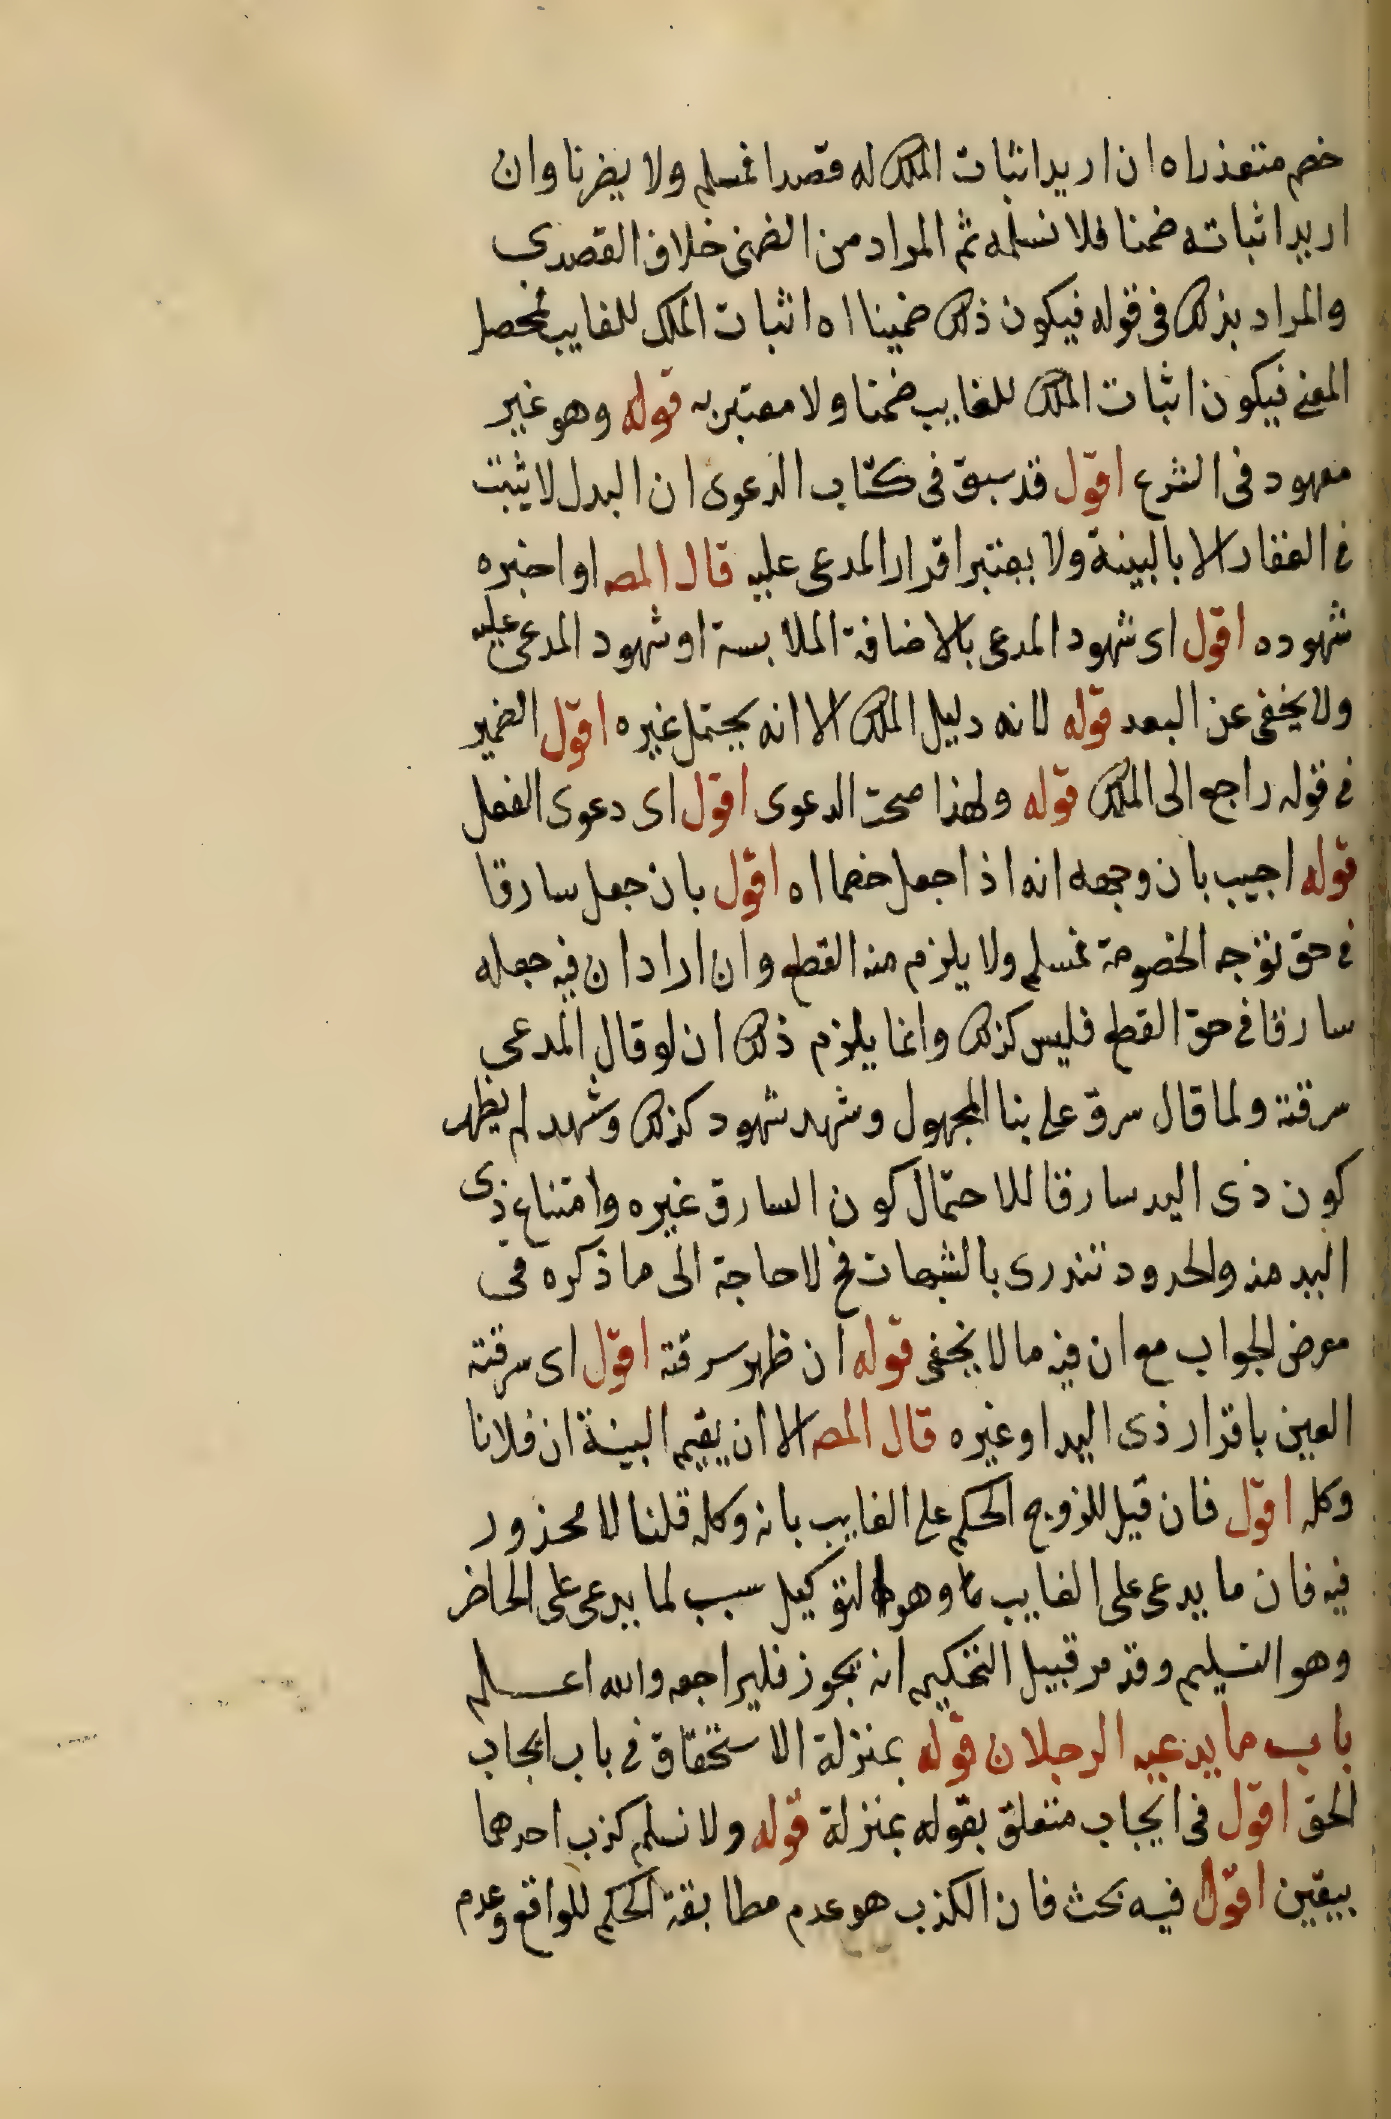 خصم متعذر اه ان اريد اثبات الملك له قصدا فمسلم ولا يضرنا وان
اريد اثباته ضمنا فلا نسلمه ثم المراد من الضمني خلاف القصدي
والمراد بذلك في قوله فيكون ذلك ضمينا اه اثبات الملك للغايب فمحصل
المعنى فيكون اثبات الملك للغايب ضمنا ولا معتبر به قوله وهو غير
معهود في الشرع اقول قد سبق في كتاب الدعوى ان البدل لا يثبت
في العقار الا بالبينة ولا يعتبر اقرار المدعى عليه قال المصـ او اخبره
شهوده اقول اى شهود المدعى بالاضافة الملابسة او شهود المدعى عليه
ولا يخفى عن البعد قوله لانه دليل الملك الا انه يحتمل غيره اقول الضمير
في قوله راجع الى الملك قوله ولهذا صحت الدعوى اقول اى دعوى الفعل
قوله اجيب بان وجهه انه اذا جعل خصما اه اقول بان جعل سارقا
في حق توجه الخصومة فمسلم ولا يلزم منه القطع وان اراد ان فيه جعله
سارقا في حق القطع فليس كذلك وانما يلزم ذلك ان لو قال المدعى
سرقته ولما قال سرق على بنا المجهول وشهد شهود كذلك وشهد لم يظهر
كون ذى اليد سارقا للاحتمال كون السارق غيره وامتناع ذى
اليد منه والحدود تندرى بالشبهات فح لا حاجة الى ما ذكره في
معرض الجواب مع ان فيه ما لا يخفى قوله ان ظهر سرقته اقول اى سرقته
العين باقرار ذى اليد او غيره قال المصـ الا ان يقيم البينة ان فلانا
وكله اقول فان قيل للزوم الحكم على الغايب بانه وكله قلنا لا محذور
فيه فان ما يدعى على الغايب وهو التوكيل سبب لما يدعى على الحاضر
وهو التسليم وقد مر قبيل التحكيم انه يجوز فليراجع والله اعلم
باب ما يدعيه الرجلان قوله بمنزلة الاستحقاق في باب ايجاب
الحق اقول في ايجاب متعلق بقوله بمنزلة قوله ولا نسلم كذب احدهما
بيقين اقول فيه بحث فان الكذب هو عدم مطابقة الحكم للواقع وعدم